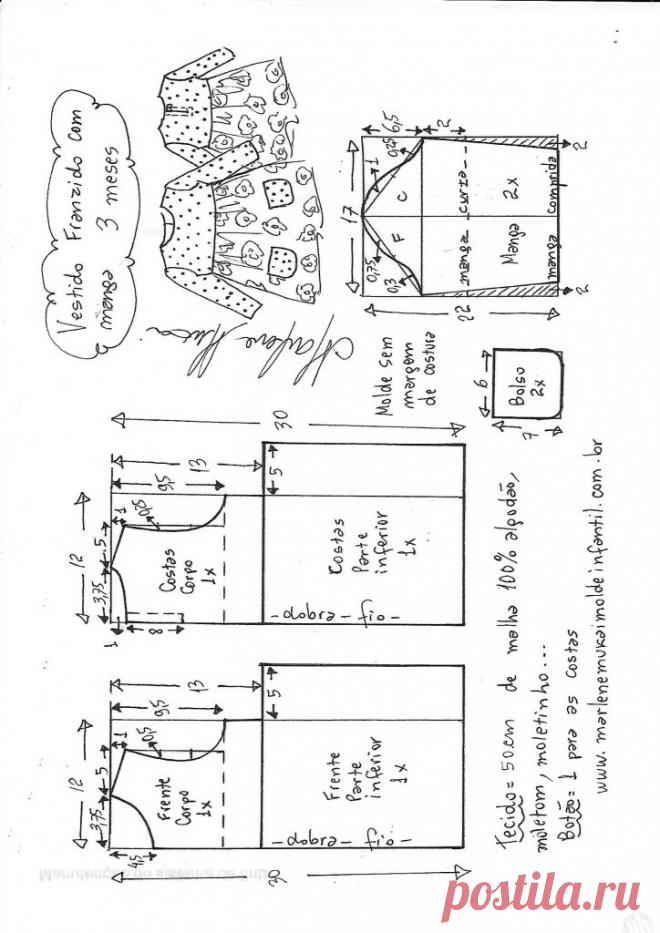 Vestido Franzido com
manga 3 meses
17
6,5
2
0,25
1
C
F
0,75
0,3
manga curta
Manga 2x
manga comprida
22
2
2
Molde sem
margem
de costura
6
Bolso
2x
7
30
13
9,5
1
12
5
3,75
0,25
Costas
Corpo
1x
8
1
5
Costas
Parte
inferior
1x
fio - dobra
30
13
9,5
1
12
5
3,75
0,5
Frente
Corpo
1x
4,5
5
Frente
Parte
inferior
1x
fio - dobra
Tecido = 50cm de malha 100% algodão,
moletom, moletinho...
Botão = 1 para as costas
www.marlenemukaimoldeinfantil.com.br
postila.ru